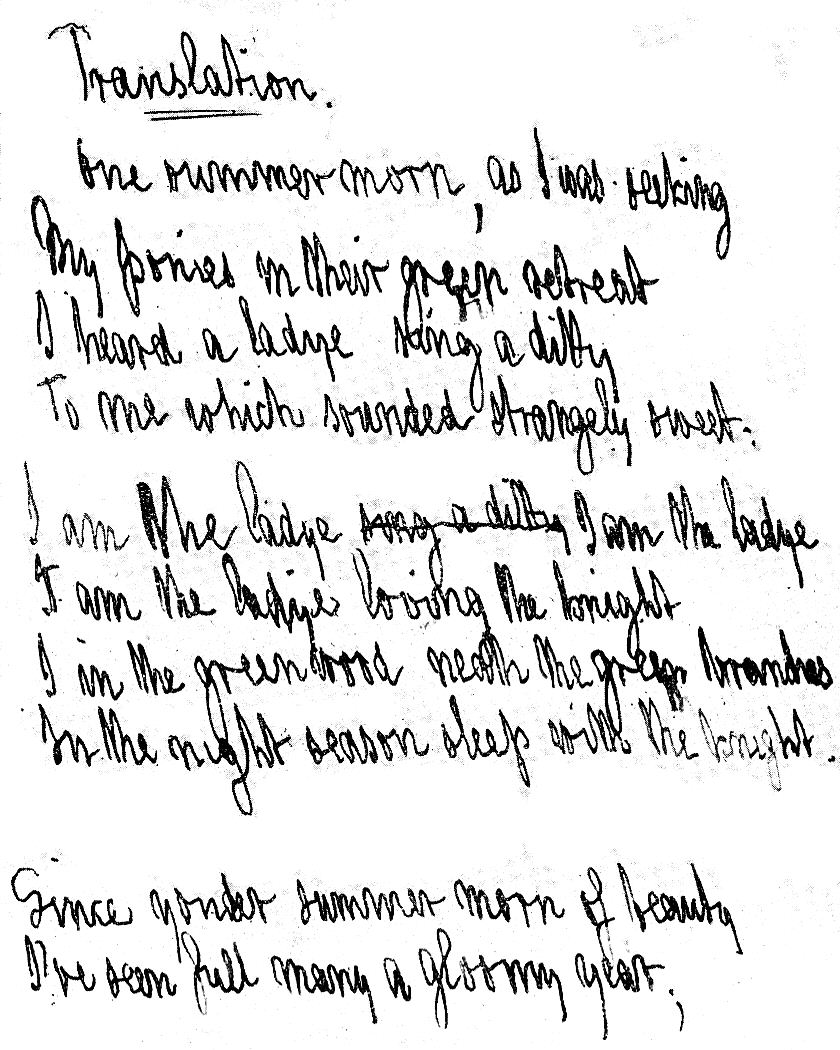 Translation.
One summer morn, as I was seeking
My ponies in their green retreat
I heard a ladye sing a ditty
To me which sounded strangely sweet:
I am the ladye song a ditty I am the ladye
I am the ladye loving the knight
I in the greenwood neath the green branches
In the night season sleep with the knight.
Since yonder summer morn of beauty
I've seen full many a gloomy year;